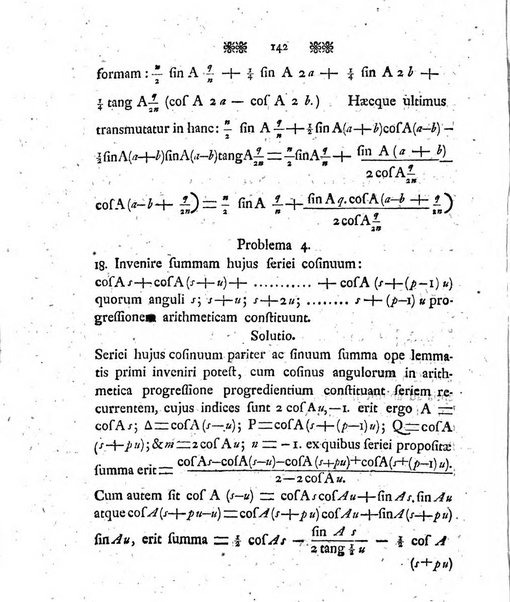 142
formam: n/2 ſin A q/n + ¼ ſin A 2 a + ¼ ſin A 2 b +
¼ tang A q/2n (coſ A 2 a − coſ A 2 b.) Hæcque ultimus
transmutatur in hanc: n/2 ſin A q/n + ½ ſin A(a+b)coſA(a−b) −
½ſinA(a+b)ſinA(a−b)tangA q/2n = n/2 ſinA q/n + ſin A (a + b) / 2 coſ A q/2n
coſA(a−b + q/2n) = n/2 ſin A q/n + ſin A q. coſ A (a−b + q/2n) / 2 coſ A q/2n
Problema 4.
18. Invenire ſummam hujus ſeriei coſinuum:
coſAs+coſA(s+u)+ ........... + coſA (s+(p−1) u)
quorum anguli s; s+u; s+2u; ........ s+ (p−1) u pro-
greſſionem arithmeticam conſtituunt.
Solutio.
Seriei hujus coſinuum pariter ac ſinuum ſumma ope lemma-
tis primi inveniri poteſt, cum coſinus angulorum in arith-
metica progreſſione progredientium conſtituant ſeriem re-
currentem, cujus indices ſunt 2 coſ Au, −1. erit ergo A =
coſ A s; Δ=coſA(s−u); P=coſA(s+(p−1)u); Q=coſA
(s+pu); & m=2 coſ A u; n = −1. ex quibus ſeriei propoſitæ
ſumma erit = coſAs−coſA(s−u)−coſA(s+pu)+coſA(s+(p−1)u). / 2−2 coſ A u.
Cum autem ſit coſ A (s−u) = coſ A s coſ A u+ſin A s. ſin A u
atque coſA(s+pu−u)=coſA(s+pu) coſ Au+ſinA(s+pu)
ſin A u, erit ſumma = ½ coſ A s − ſin A s / 2 tang ½ u − ½ coſ A
(s+pu)